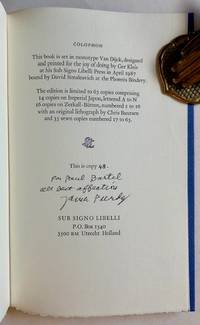 COLOPHON
This book is set in monotype Van Dijck, designed
and printed for the joy of doing by Ger Kleis
at his Sub Signo Libelli Press in April 1987
bound by David Simaleavich at the Phoenix Bindery.
The edition is limited to 63 copies comprising
14 copies on Imperial Japon, lettered A to N
16 copies on Zerkall-Bütten, numbered 1 to 16
with an original lithograph by Chris Buursen
and 33 sewn copies numbered 17 to 63.
This is copy 48.
For Paul Bartel
with best affection
James Purdy
SUB SIGNO LIBELLI
P.O. Box 1340
3500 BH Utrecht Holland